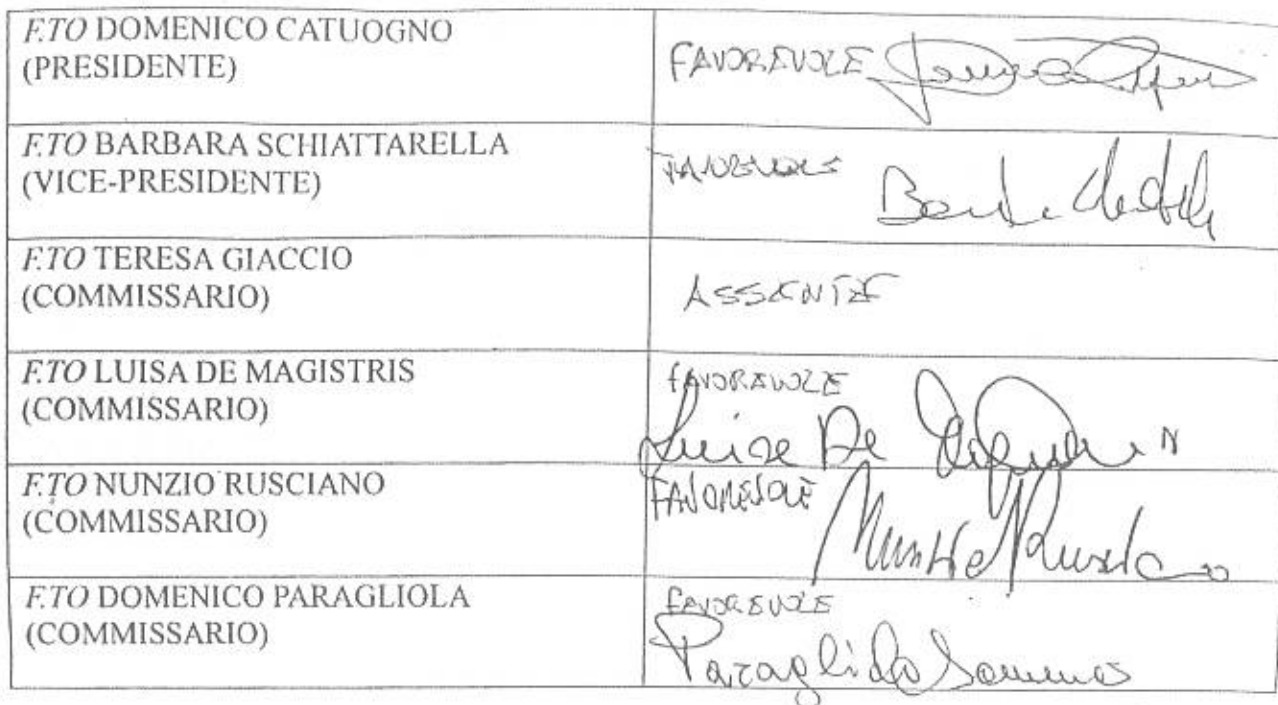 F.TO DOMENICO CATUOGNO
(PRESIDENTE)
FAVOREVOLE
F.TO BARBARA SCHIATTARELLA
(VICE-PRESIDENTE)
FAVOREVOLE
F.TO TERESA GIACCIO
(COMMISSARIO)
ASSENTE
F.TO LUISA DE MAGISTRIS
(COMMISSARIO)
FAVOREVOLE
Luisa De Magistris
F.TO NUNZIO RUSCIANO
(COMMISSARIO)
FAVOREVOLE
Nunzio Rusciano
F.TO DOMENICO PARAGLIOLA
(COMMISSARIO)
FAVOREVOLE
Paragliola